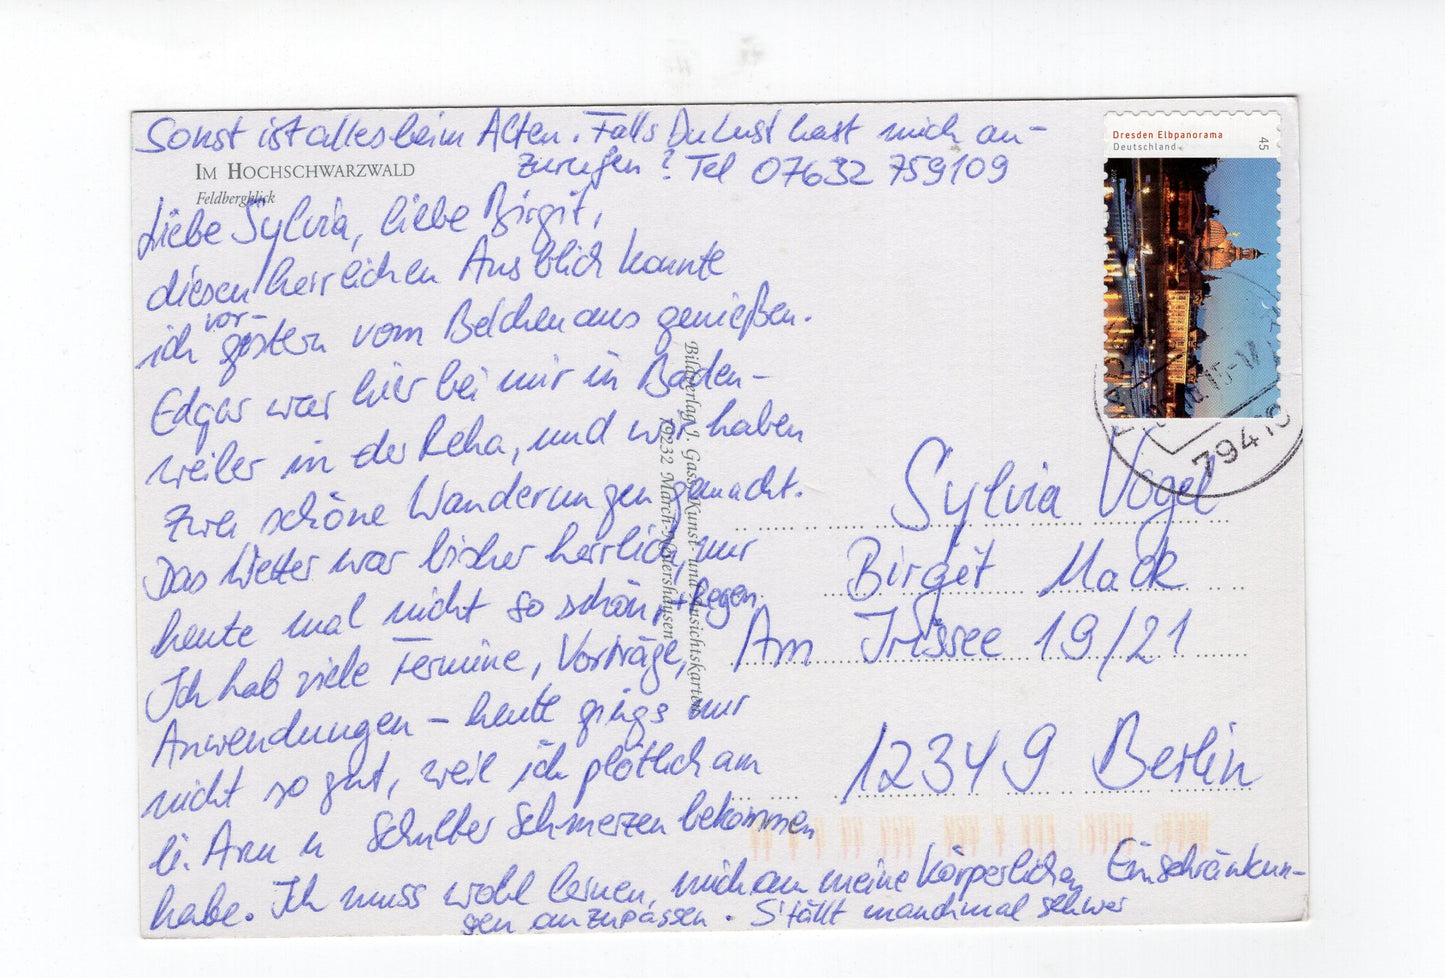 Sonst ist alles beim Alten. Falls Du Lust hast mich an-
zurufen? Tel 07632 759109
IM HOCHSCHWARZWALD
Feldbergblick
Liebe Sylvia, liebe Birgit,
diesen herrlichen Ausblick konnte
ich vor-
gestern vom Belchen aus genießen.
Edgar war hier bei mir in Baden-
weiler in der Reha, und wir haben
zwei schöne Wanderungen gemacht.
Das Wetter war bisher herrlich, nur
heute mal nicht so schön, + Regen.
Ich hab viele Termine, Vorträge,
Anwendungen – heute gings nur
nicht so gut, weil ich plötzlich am
li. Arm u Schulter Schmerzen bekommen
habe. Ich muss wohl lernen, mich an meine körperlichen Einschränkun-
gen anzupassen. S'fällt manchmal schwer
Bildverlag J. Gass, Kunst- und Ansichtskarten
79232 March-Neuershausen
Dresden Elbpanorama
Deutschland
45
79415
Sylvia Vogel
Birgit Mack
Am Irissee 19/21
12349 Berlin